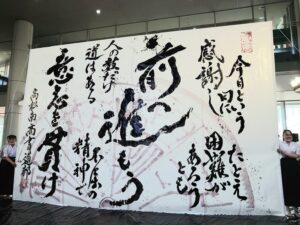 今日という
感謝し思い
たとえ
困難が
あろうとも
前に進もう
人の数だけ
道はある
不屈の
精神で
意志を貫け
高松南高書道部